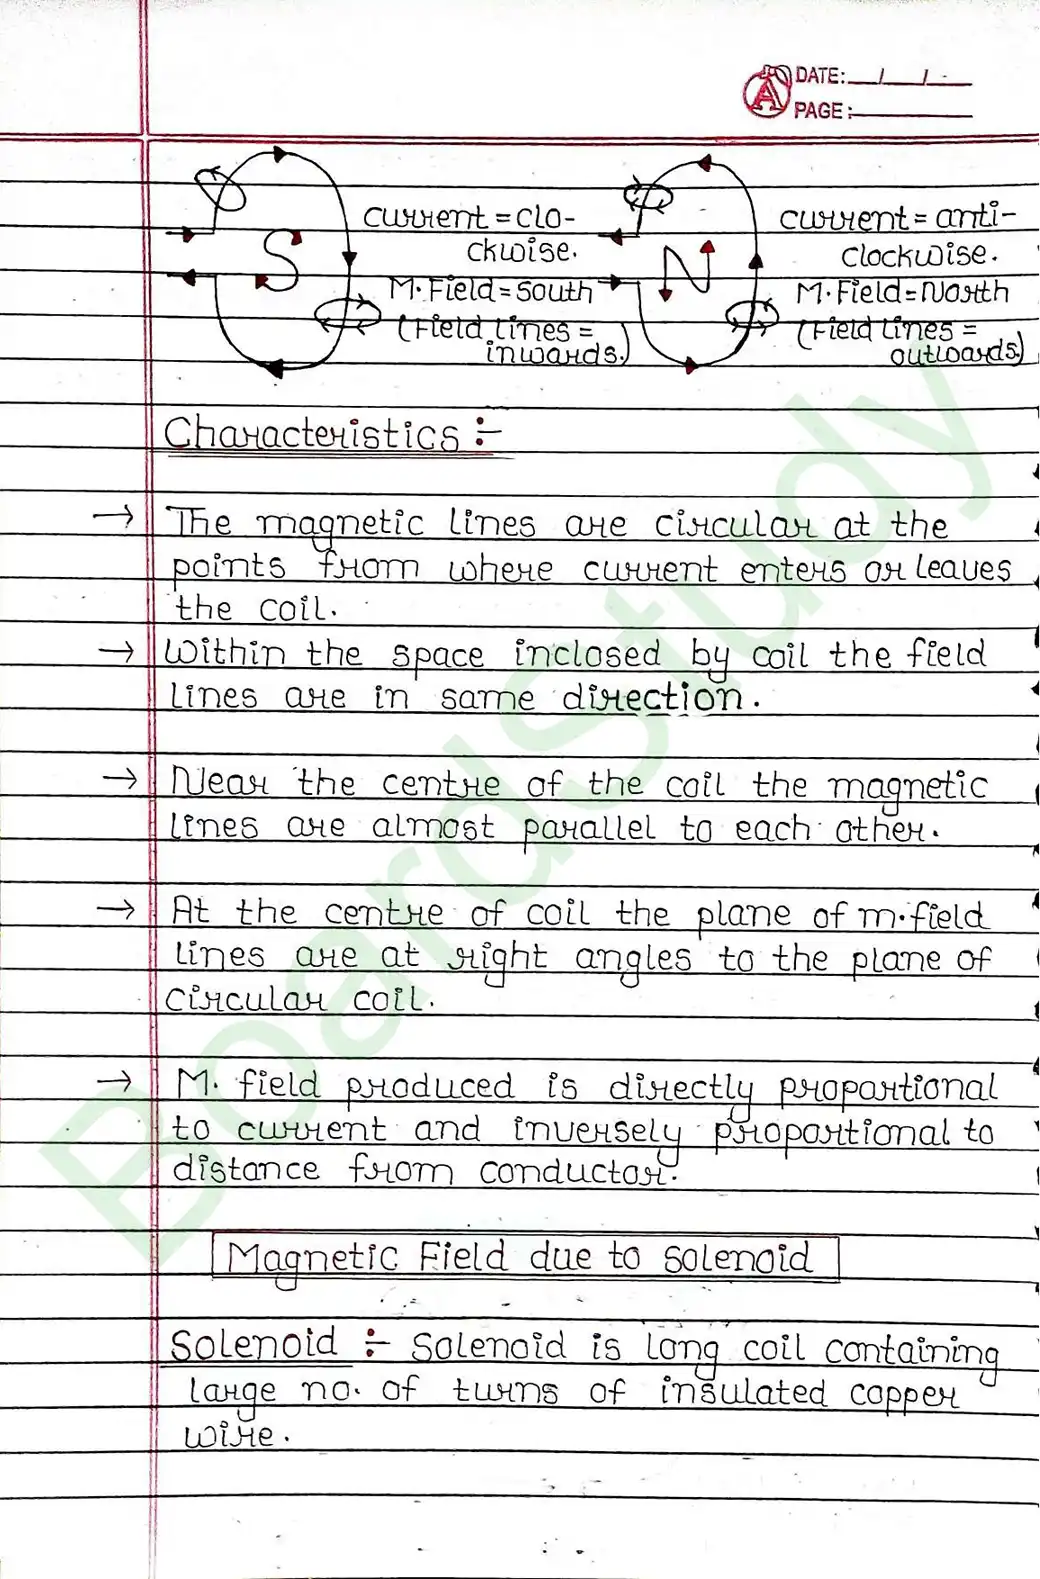 DATE: / /
PAGE:
current = clo-
ckwise.
M. Field = South
(Field Lines =
inwards.)
S
current = anti-
clockwise.
M. Field = North
(Field Lines =
outwards.)
N
Characteristics :-
→ The magnetic lines are circular at the
points from where current enters or leaves
the coil.
→ Within the space inclosed by coil the field
lines are in same direction.
→ Near the centre of the coil the magnetic
lines are almost parallel to each other.
→ At the centre of coil the plane of m. field
lines are at right angles to the plane of
circular coil.
→ M. field produced is directly proportional
to current and inversely proportional to
distance from conductor.
Magnetic Field due to solenoid
Solenoid :- Solenoid is long coil containing
large no. of turns of insulated copper
wire.
BoardStudy